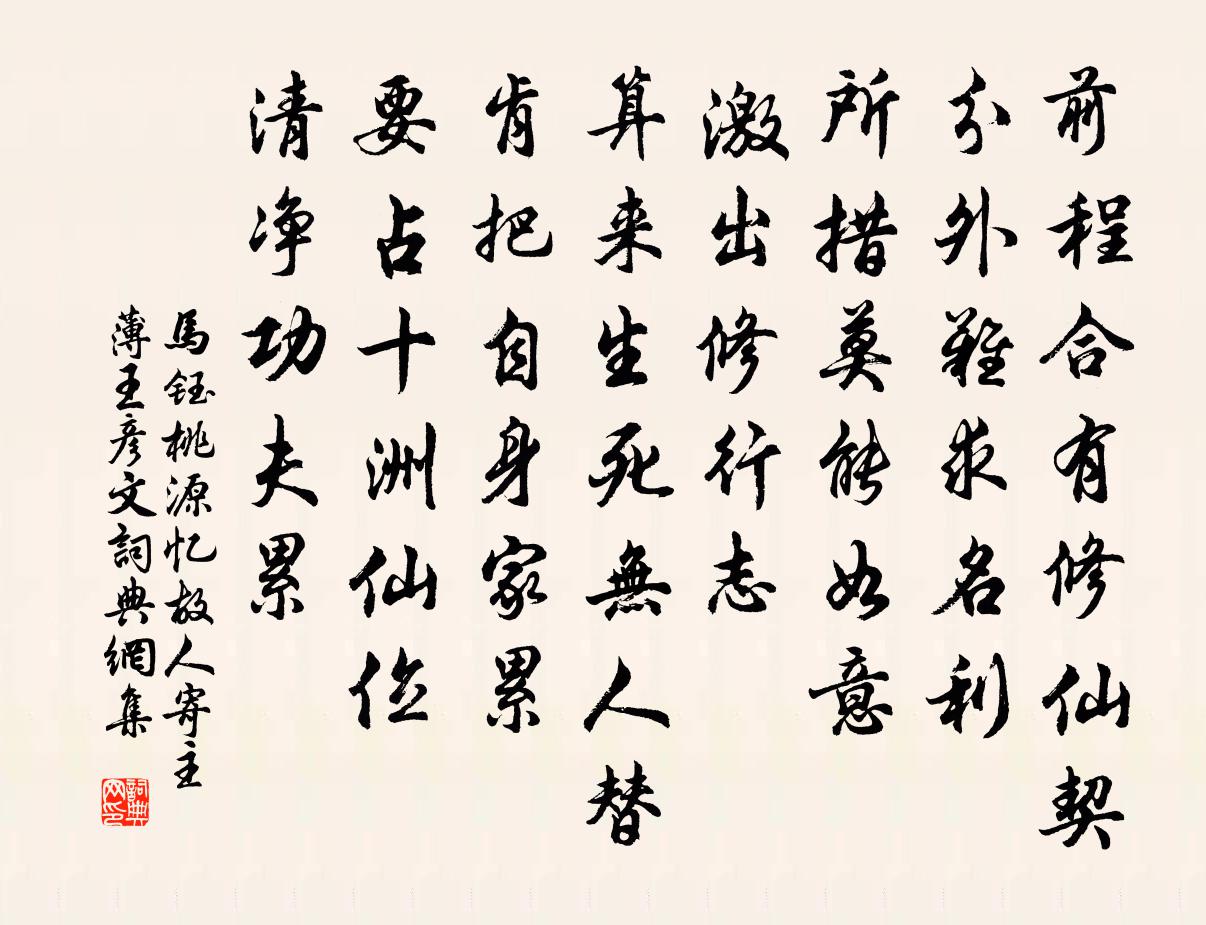 前程合有修仙契
分外難求名利
所措莫能如意
激出修行志
算来生死無人替
肯把自身家累
要占十洲仙位
清净功夫累
馬鈺桃源忆故人寄主
薄王彦文詞典網集
詞典网印